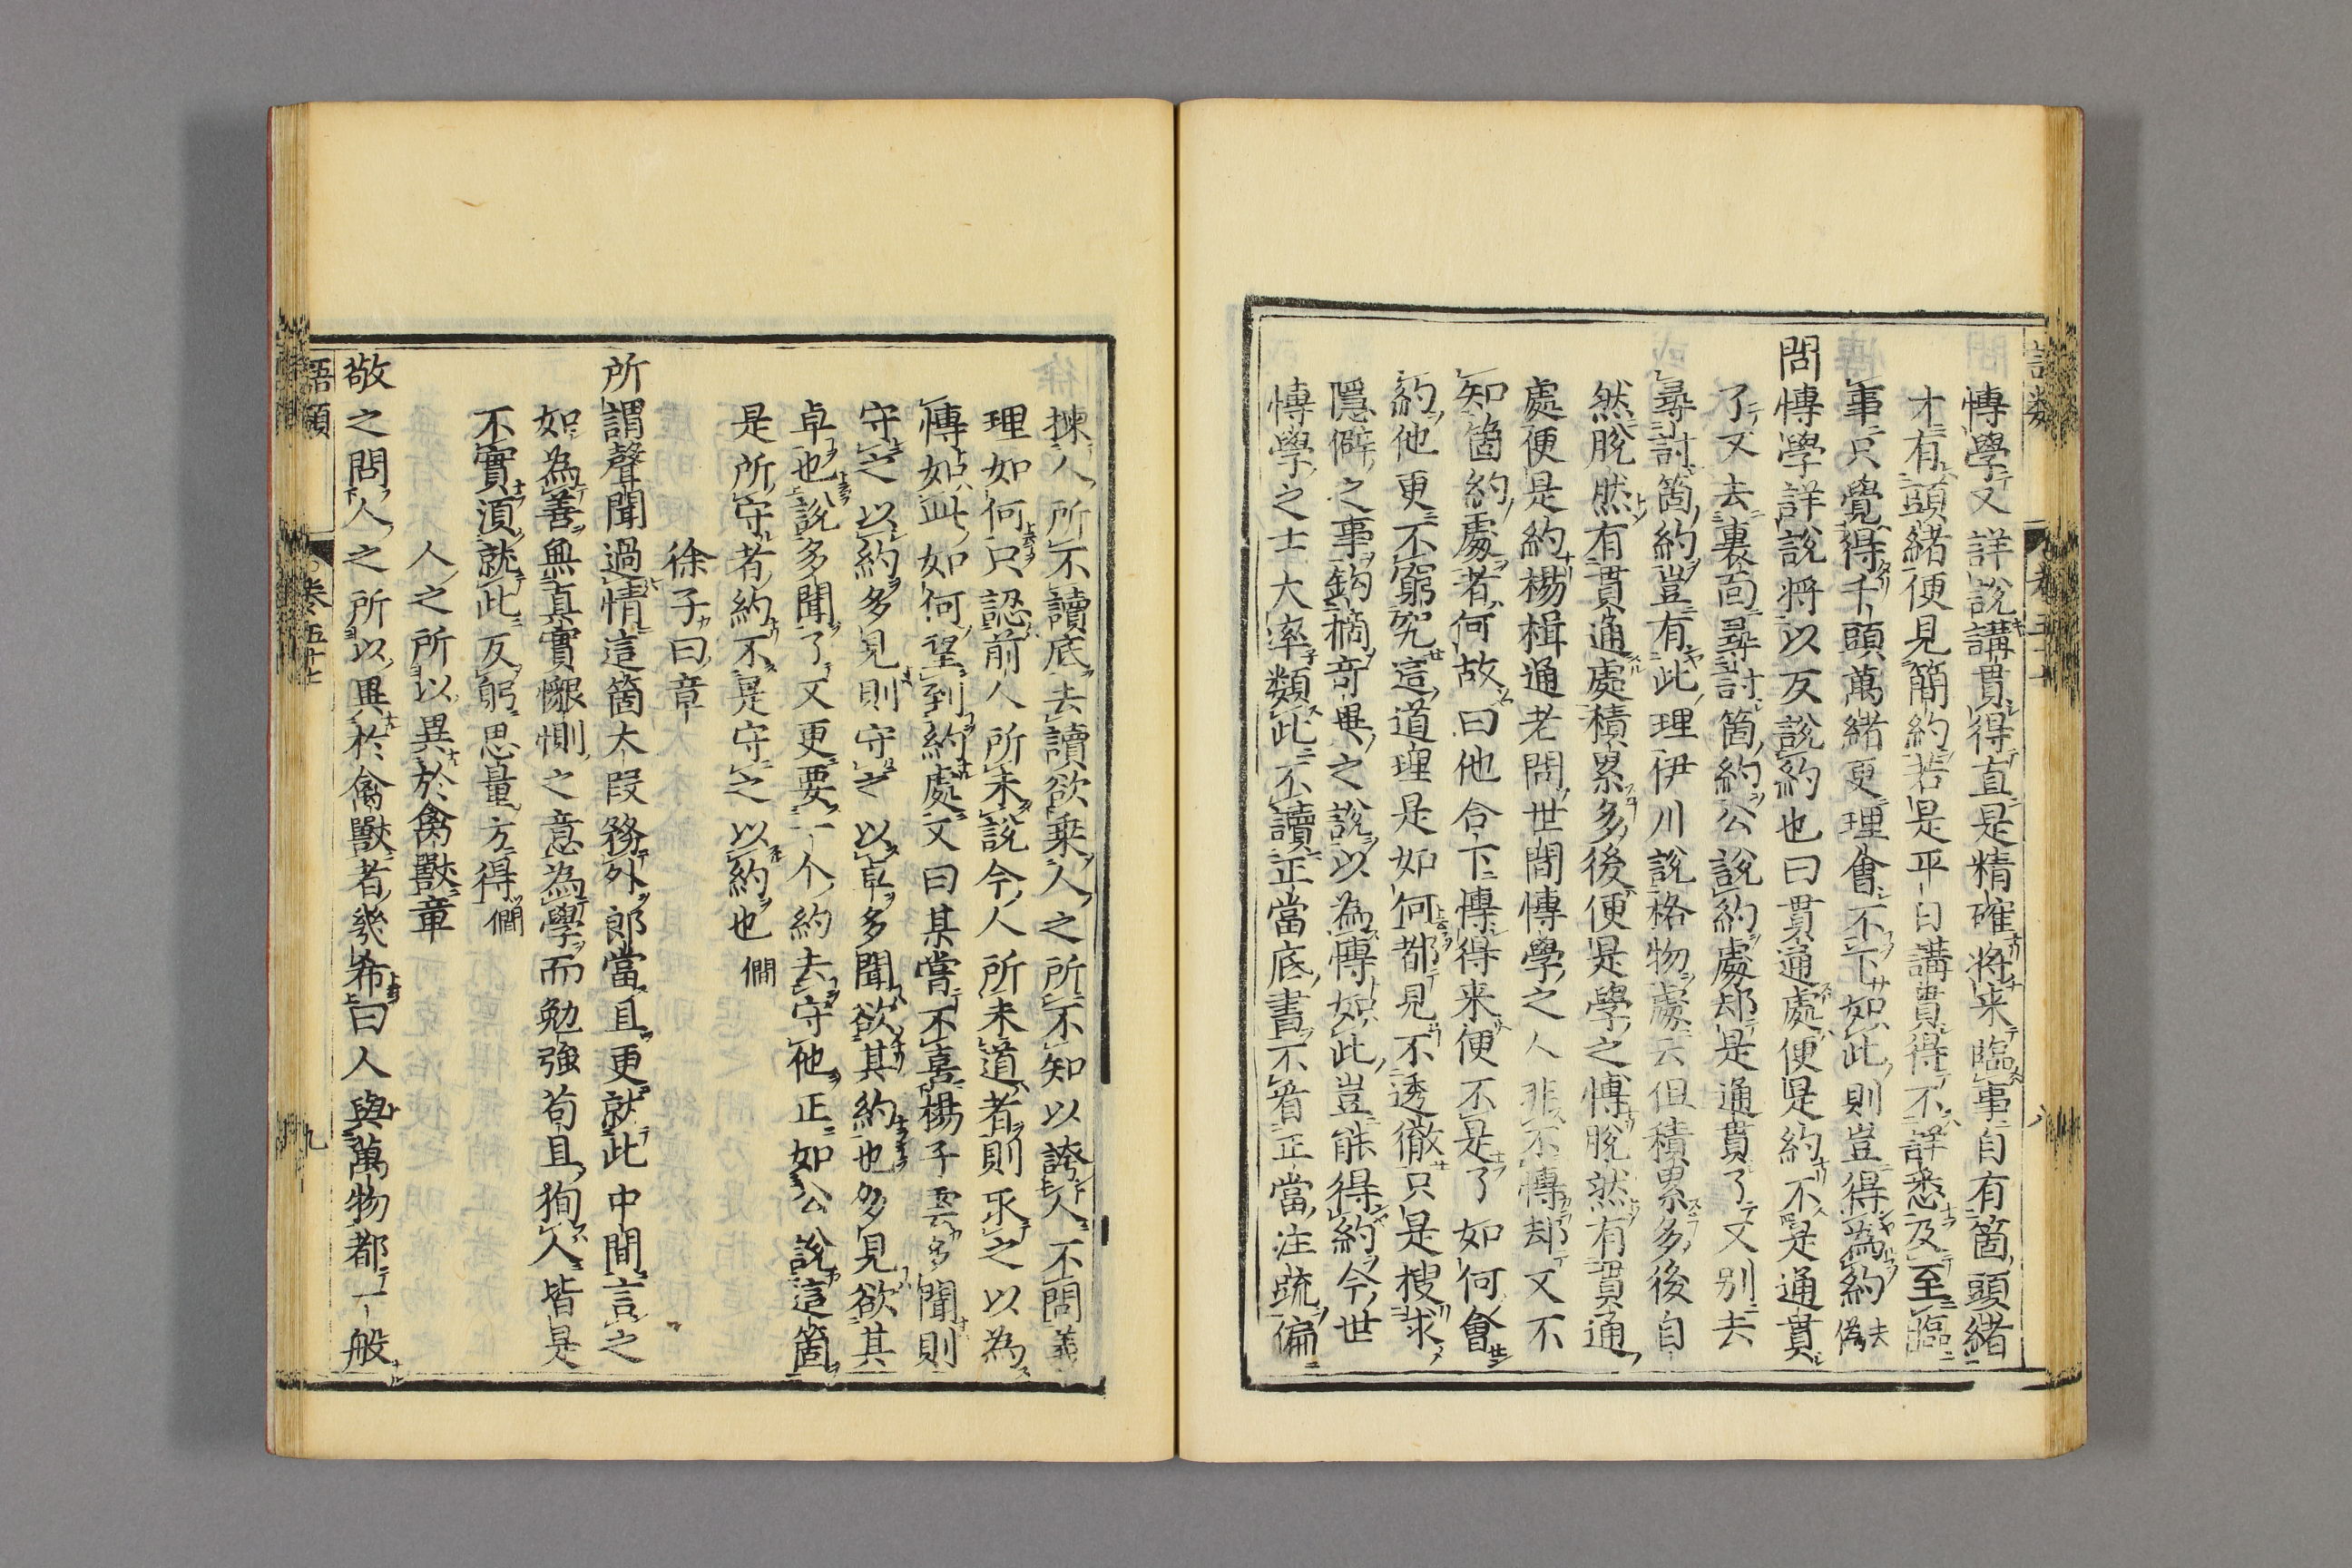 愽學又詳說講貫得直是精確将来臨事自有箇頭緒
才有頭緒便見簡約若是平日講貫得不詳悉及至臨
事只覺得千頭萬緒更理會不下如此則豈得為約去偽
問愽學詳說将以反說約也曰貫通處便是約不是通貫
了又去裏面尋討箇約公說約處却是通貫了又别去
尋討箇約豈有此理伊川說格物處云但積累多後自
然脫然有貫通處積累多後便是學之愽脫然有貫通
處便是約楊楫通老問世間愽學之人非不愽却又不
知箇約處者何故曰他合下愽得来便不是了如何會
約他更不窮究這道理是如何都見不透徹只是搜求
隱僻之事鈎摘竒異之說以為愽如此豈能得約今世
愽學之士大率類此不讀正當底書不看正當注疏偏
揀人所不讀底去讀欲乗人之所不知以誇人不問義
理如何只認前人所未說今人所未道者則取之以為
愽如此如何望到約處又曰某嘗不喜楊子雲多聞則
守之以約多見則守之以卓多聞欲其約也多見欲其
卓也說多聞了又更要一个約去守他正如公說這箇
是所守者約不是守之以約也 僩
徐子曰章
所謂聲聞過情這箇大段務外郎當且更就此中間言之
如為善無真實懇惻之意為學而勉強苟且狥人皆是
不實須就此反躬思量方得 僩
人之所以異於禽獸章
敬之問人之所以異於禽獸者幾希曰人與萬物都一般
語類 卷五十七 九